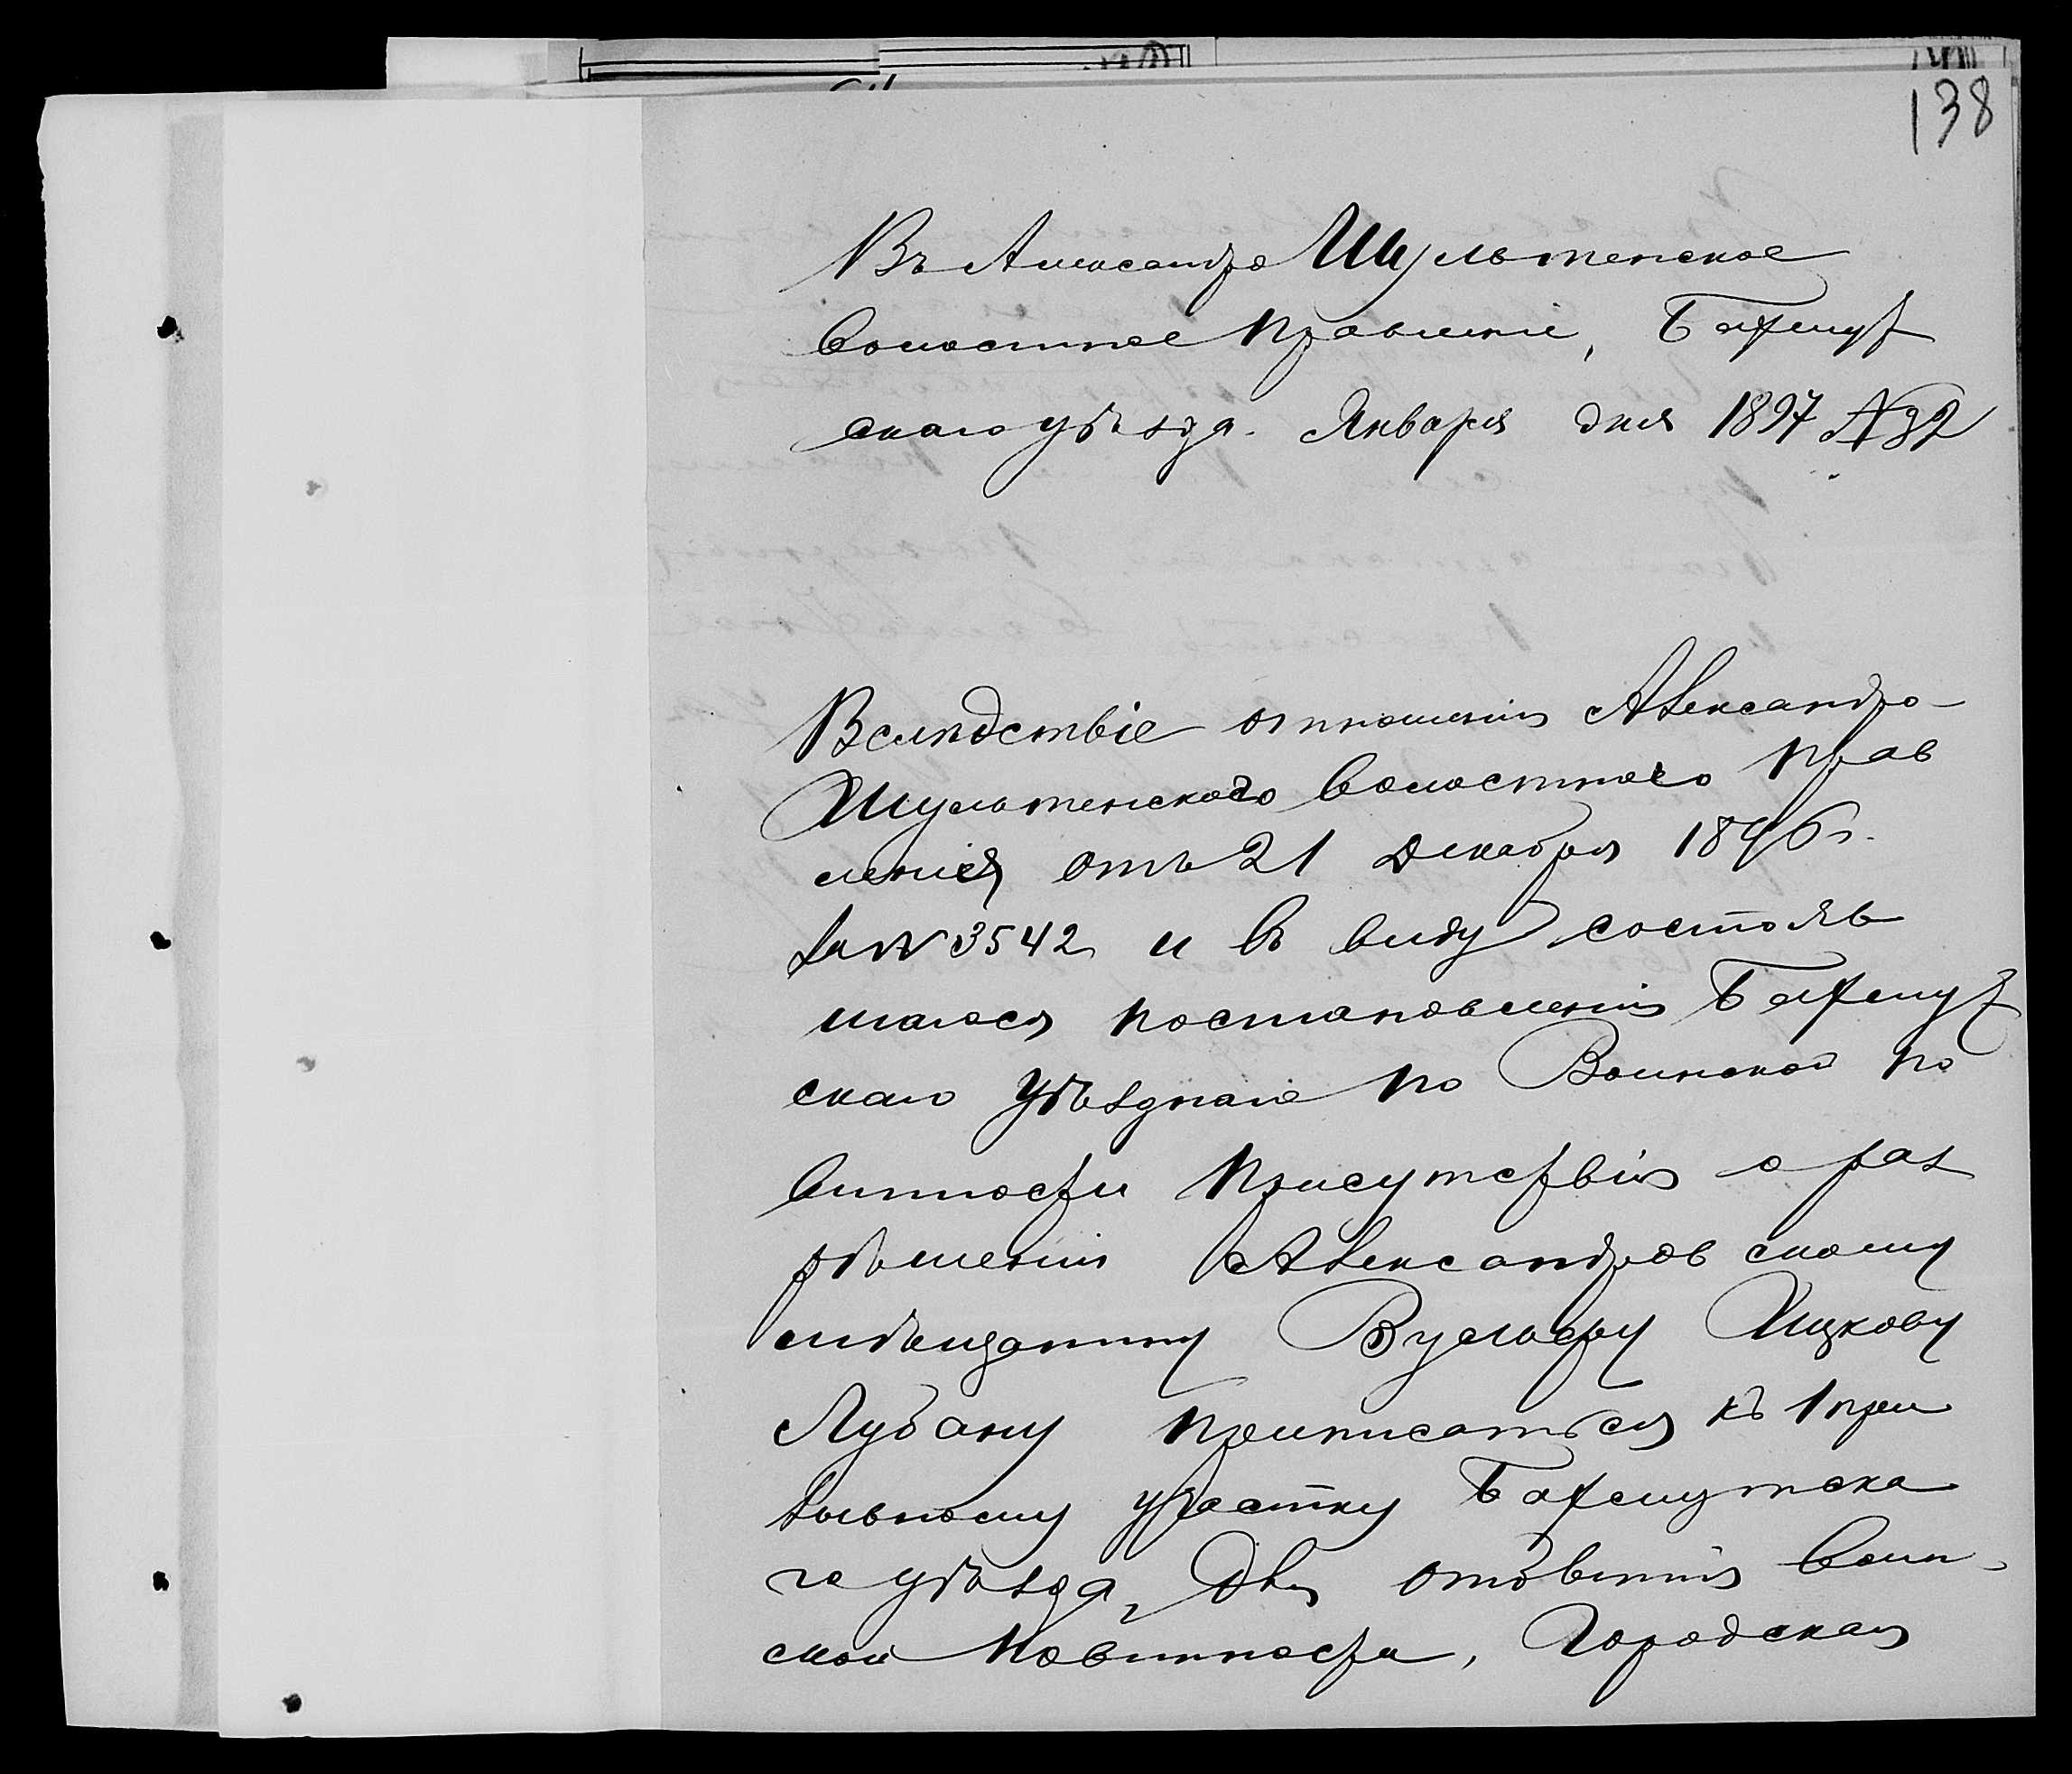 138
Въ Александро Шультенское
Волостное Правленіе, Бахмут
скаго уѣзда. Января дня 1897 № 32
Вслѣдствіе отношенія Александро-
Шультенскаго Волостного Прав
ленія отъ 21 Декабря 1896 г.
за № 3542 и въ виду состояв
шагося постановленія Бахмут
скаго Уѣзднаго по Воинской по
винности Присутствія о раз
рѣшеніи Александровскому
мѣщанину Вульфу Ицкову
Лубану приписаться къ 1 при
зывному участку Бахмутска
го уѣзда, для отбытія воин-
ской повинности, Городская